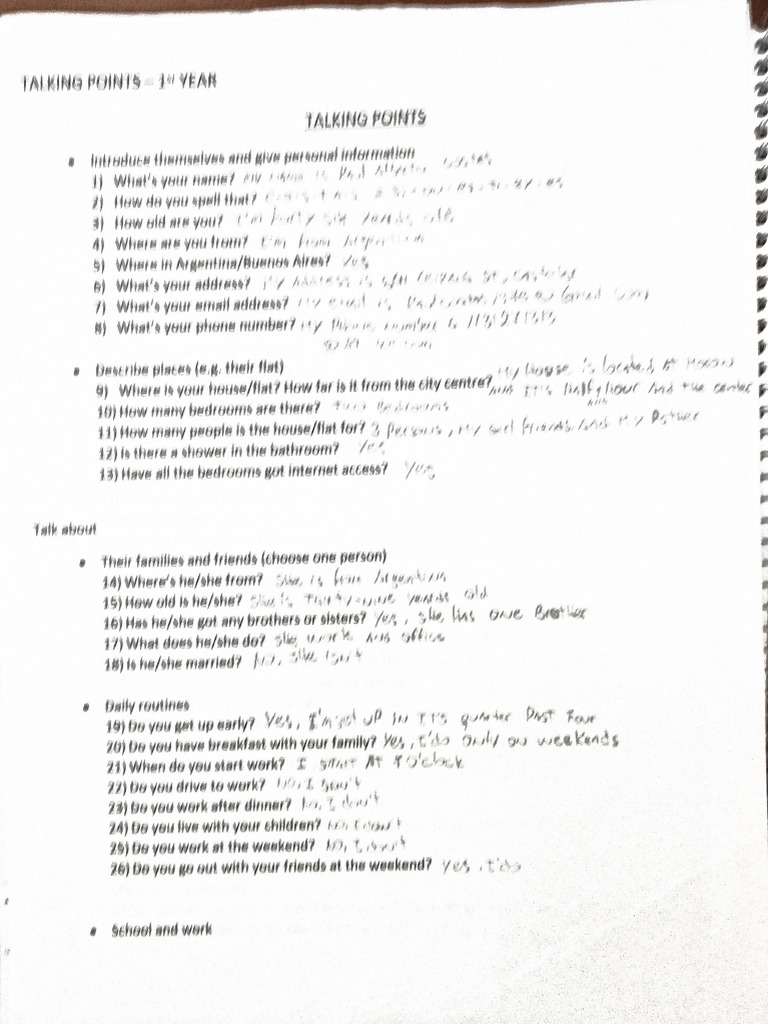 TALKING POINTS – 1st YEAR
TALKING POINTS
• Introduce themselves and give personal information
1) What's your name? My name is
2) How do you spell that?
3) How old are you? I'm forty six years old
4) Where are you from? I'm from Argentina
5) Where in Argentina/Buenos Aires? Yes
6) What's your address? My Address is
7) What's your email address? My email is
8) What's your phone number? My Phone number is
• Describe places (e.g. their flat) My House is located at
9) Where is your house/flat? How far is it from the city centre? And IT's half hour and the center
10) How many bedrooms are there? Two Bedrooms
11) How many people is the house/flat for? 3 Persons, My and My
12) Is there a shower in the bathroom? Yes
13) Have all the bedrooms got internet access? Yes
Talk about
• Their families and friends (choose one person)
14) Where's he/she from? She is from Argentina
15) How old is he/she? She is Thirty-nine years old
16) Has he/she got any brothers or sisters? Yes, She has one Brother
17) What does he/she do? She work and office
18) Is he/she married? No, She isn't
• Daily routines
19) Do you get up early? Yes, I'm get up in IT's quarter Past Four
20) Do you have breakfast with your family? Yes, I'do only on weekends
21) When do you start work? I start At o'clock
22) Do you drive to work? No, I don't
23) Do you work after dinner? No, I don't
24) Do you live with your children? No, I don't
25) Do you work at the weekend? No, I don't
26) Do you go out with your friends at the weekend? Yes, I'do
• School and work